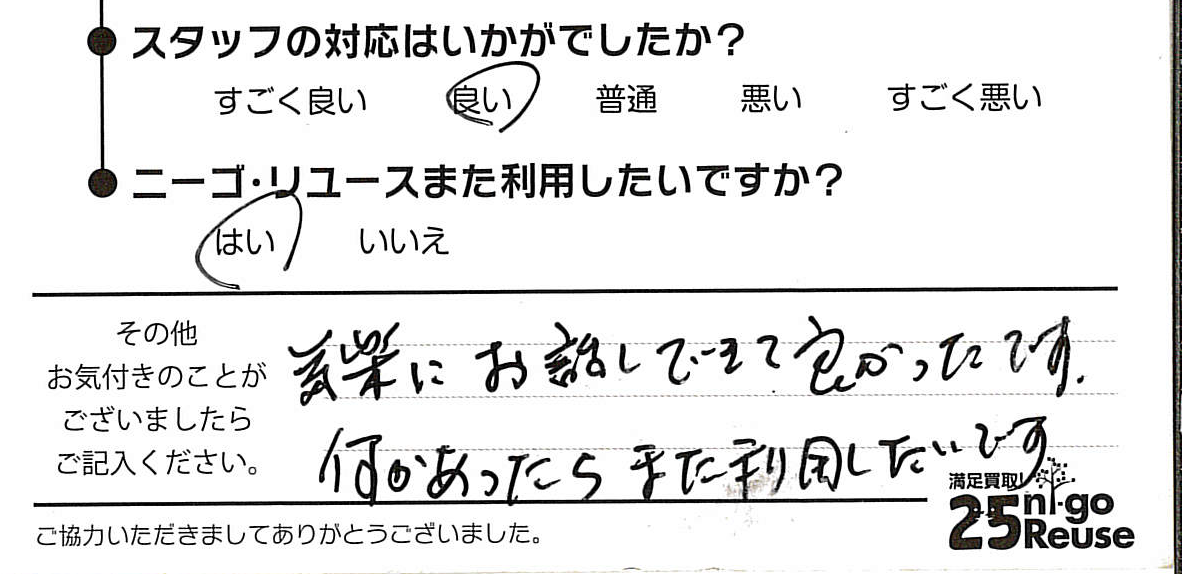 スタッフの対応はいかがでしたか？
すごく良い 良い 普通 悪い すごく悪い
ニーゴ・リユースまた利用したいですか？
はい いいえ
その他
お気付きのことが
ございましたら
ご記入ください。
気楽にお話しできて良かったです.
何かあったらまた利用したいです
満足買取!
25 ni-go
Reuse
ご協力いただきましてありがとうございました。